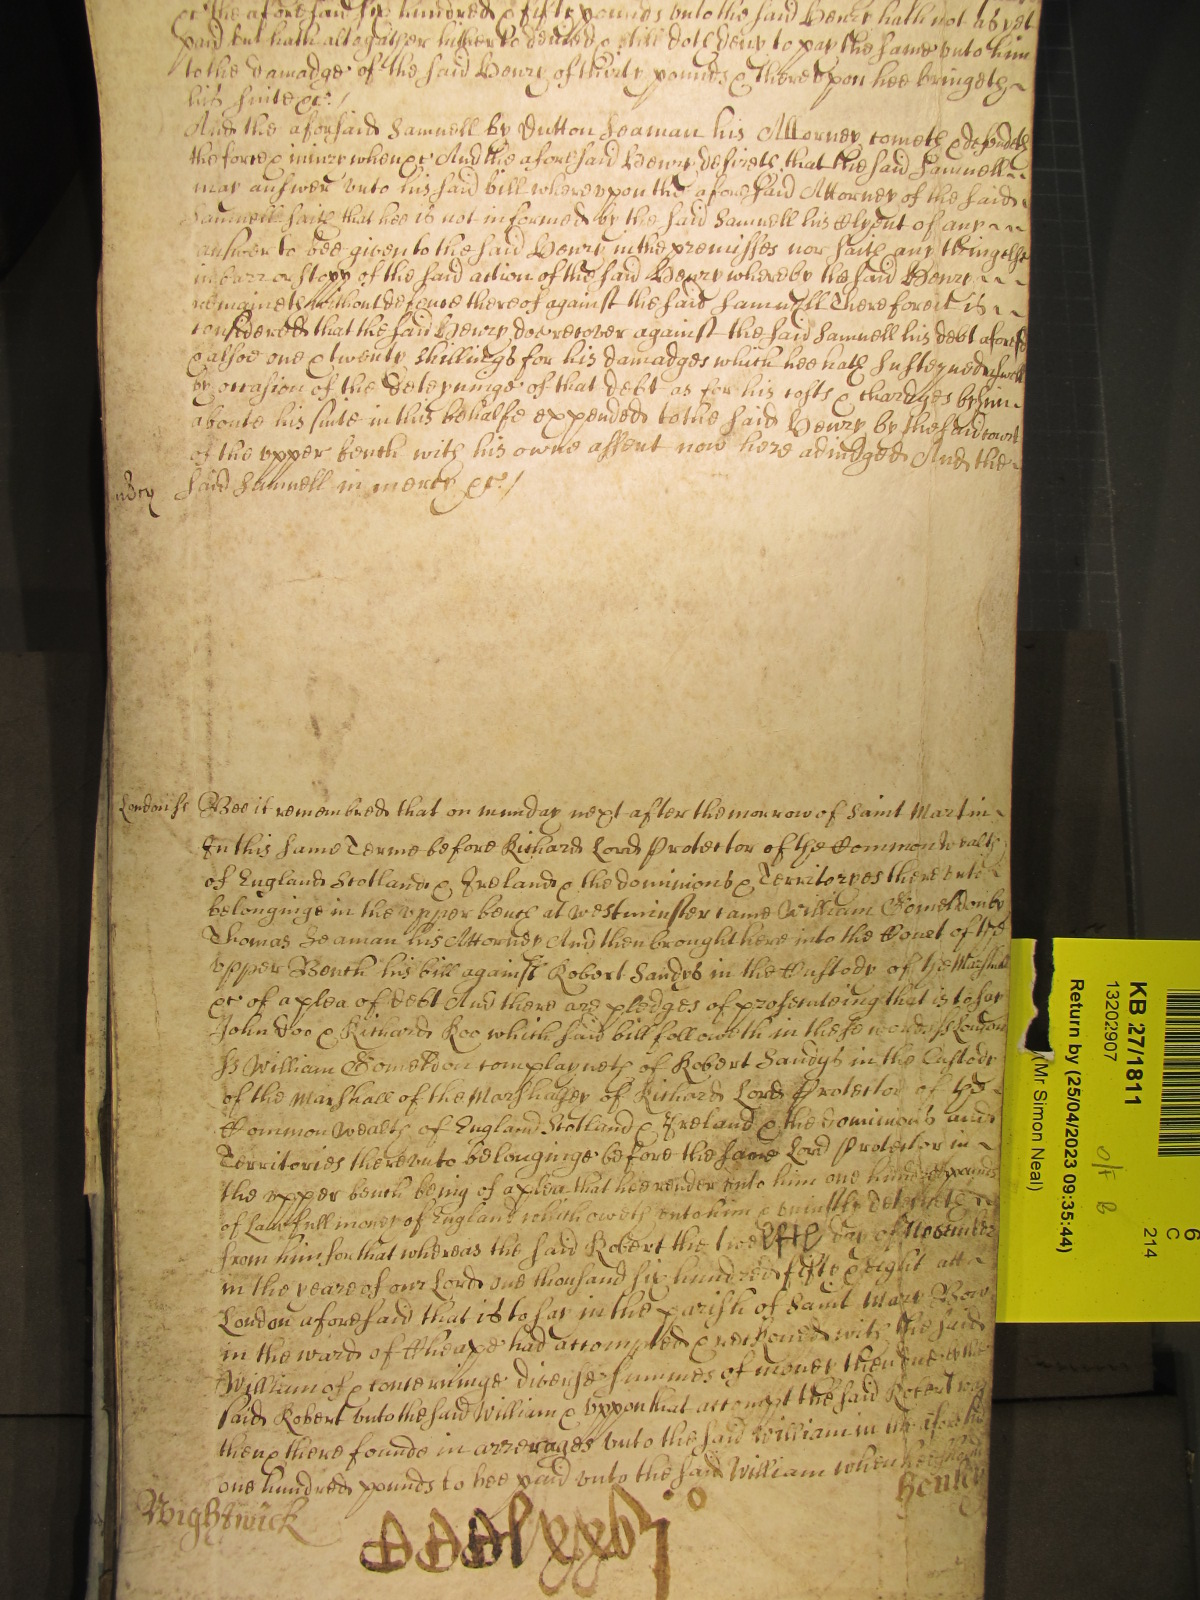 &c the aforesaid six hundred & fifty pounds unto the said Henry hath not as yet
paid but hath altogather hitherto denied & still doth deny to pay the same unto him
to the damadge of the said Henry of thirty pounds & thereupon hee bringeth
his suite &c /
And the aforsaid Samuell by Dutton Seaman his Attorney cometh & defendeth
the force & iniury when &c And the aforesaid Henry desireth that the said Samuell
may answer unto his said bill whereupon the aforesaid Attorney of the said
Samuell saith that hee is not informed by the said Samuell his Clyent of any
answer to bee given to the said Henry in the premisses nor saith any thing else
in barr or stopp of the said action of the said Henry whereby the said Henry
remaineth without defence thereof against the said Samuell Therefore it is
considered that the said Henry doe recover against the said Samuell his debt aforesd
& alsoe one & twenty shillings for his damadges which hee hath susteyned aswell
by occasion of the deteyninge of that debt as for his costs & chardges by him
aboute his suite in this behalfe expended to the said Henry by the said court
of the upper bench with his owne assent now here adiudged And the
said Samuell in mercy &c /
mercy
London ss Bee it remembred that on munday next after the morrow of Saint Martin
In this same Terme before Richard Lord Protector of the Common Wealth
of England Scotland & Ireland & the dominions & Territoryes thereunto
belonginge in the upper bench at Westminster came William Gomeldon by
Thomas Seaman his Attorney And then brought here into the Court of the
upper Bench his bill against Robert Sandys in the Custody of the Marshall
&c of a plea of debt And there are pledges of prosecuteing that is to say
John Doo & Richard Roo which said bill followeth in these words ss London
ss William Gomeldon complayneth of Robert Sandys in the Custody
of the Marshall of the Marshalsey of Richard Lord Protector of the
Common Wealth of England Scotland & Ireland & the dominions and
Territories thereunto belonginge before the same Lord Protector in
the upper bench being of a plea that hee render unto him one hundred pounds
of Lawfull money of England which oweth unto him & uniustly deteyneth
from him for that whereas the said Robert the twelfth day of November
in the yeare of our Lord one thousand six hundred fifty & eight att
London aforesaid that is to say in the parish of Saint Mary Bow
in the ward of Cheape had accompted & reckoned with the said
William of & concerninge diverse summes of money then due by the
said Robert unto the said William & uppon that accompt the said Robert was
then & there founde in arrerages unto the said William in the aforesaid
one hundred pounds to bee paid unto the said William when
Wightwick
Henley
CCCClxxvj o
KB 27/1811
13202907
Return by (25/04/2023 09:35:44)
(Mr Simon Neal)
O/F B
6
C
214